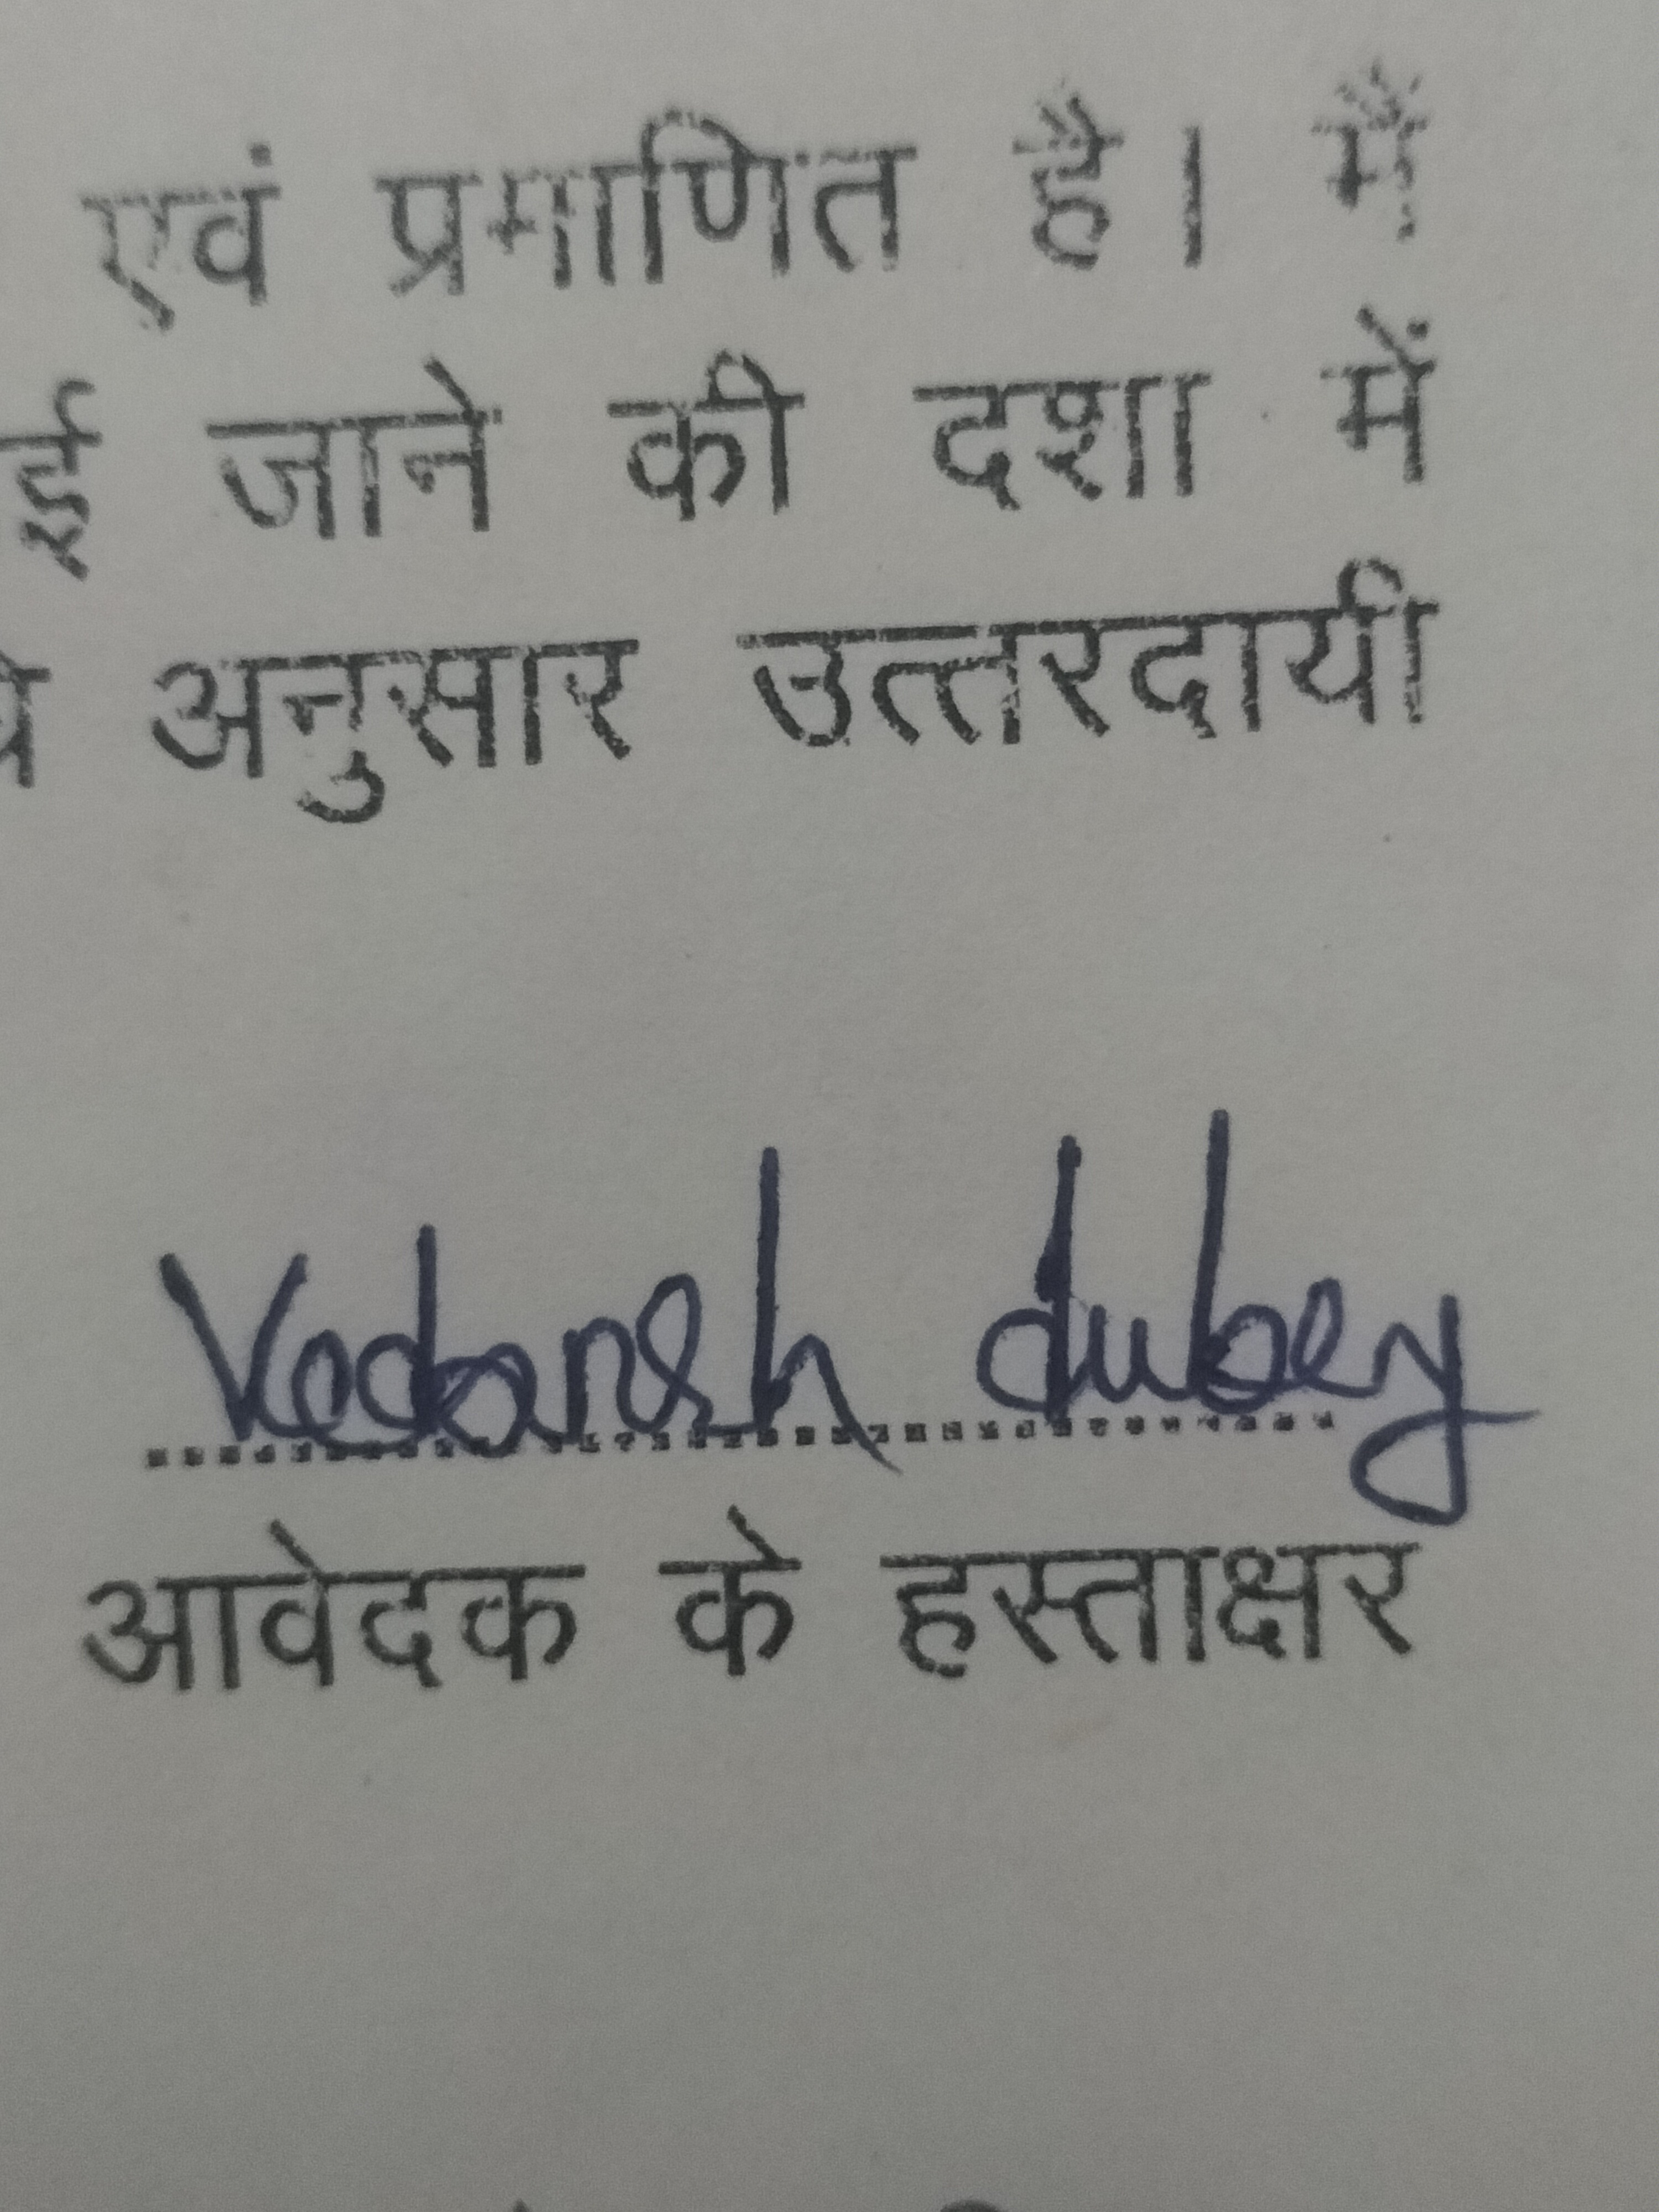 एवं प्रमाणित है। मैं
ई जाने की दशा में
अनुसार उत्तरदायी
Vedansh dubey
आवेदक के हस्ताक्षर